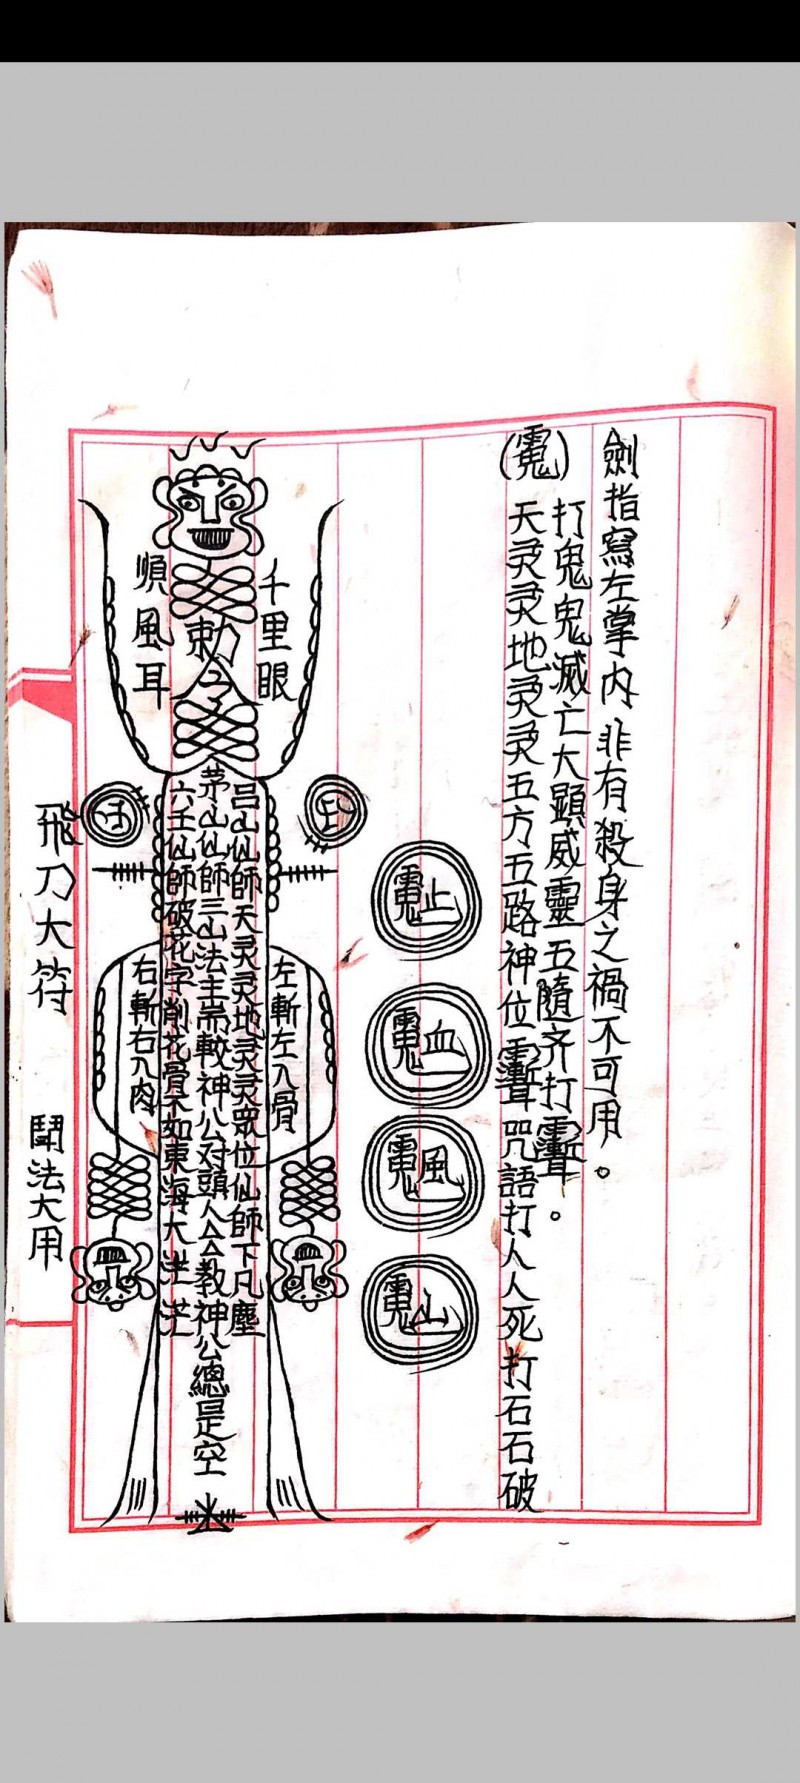 劍指寫左掌內非有殺身之禍不可用。
打鬼鬼滅亡大顯威靈五隨齐打。
天灵灵地灵灵五方五路神位咒語打人人死打石石破
止
血
風
山
千里眼
勅令
順風耳
呂山仙師天灵灵地灵灵眾位仙師下凡塵
茅山仙師三山法主高較神公对頭人厶厶教神公總是空
六壬仙師破花字削花骨不如東海大茫茫
左斬左人骨
右斬右人肉
飛刀大符
鬪法大用